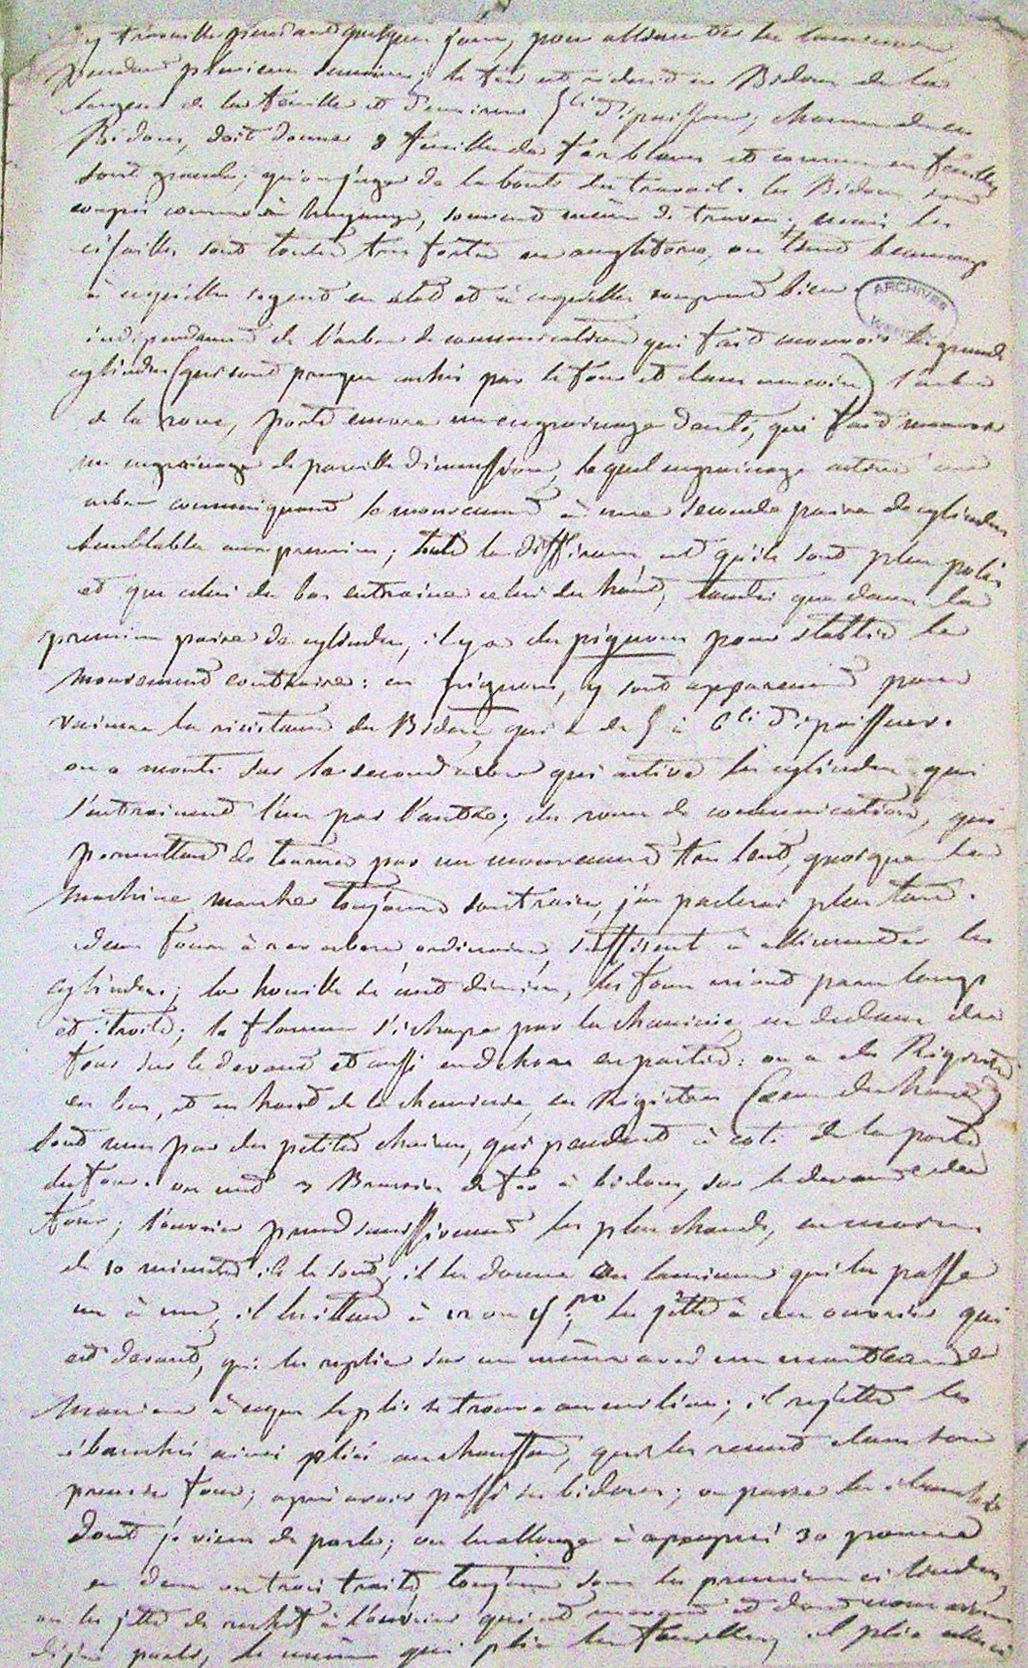 y travaille pendant quelques jours, pour allimenter les lamineurs
pendant plusieurs semaines; le fer est réduit en Bidons de la
largeur de la feuille et d'environ 5 li d'épaisseur, chacun de ces
Bidons, doit donner 8 feuilles de fer blanc et comme ces feuilles
sont grandes; qu'on juge de la bonté du travail. les Bidons sont
coupés comme à , souvent même de travers. mais les
cisailles sont toutes tres fortes en angleterre, on tient beaucoup
à ce qu'elles soyent en état et à ce qu'elles coupent bien.
ARCHIVES
indépendament de l'arbre de communication qui fait mouvoir les grands
cylindres (qui sont presque cachés par le four et dans un coin) l'arbre
de la roue, porte encore un engrainage denté, qui fait mouvoir
un engrainage de pareille dimenssion, lequel engrainage active un
arbre communiquant le mouvement à une seconde paire de cylindres
semblables aux premiers; toute la différence est qu'ils sont plus polis
et que celui du bas entraine celui du haut, tandis que dans la
premiere paire de cylindres, il y a des pignons pour établir le
mouvement contraire: ces pignons, y sont apparemment pour
vaincre la résistance du Bidon, qui a de 5 à 6 li d'épaisseur.
on a monté sur le second arbre qui active les cylindres qui
s'entrainent l'un par l'autre; des roues de communication, qui
permettent de tourner par un mouvement tres lent, quoique la
machine marche toujours son train, j'en parlerai plus tard.
deux fours à ordinaires, suffisent à allimenter les
cylindres; la houille se met derrière, les fours étant peu longs
et étroits; la flamme s'échape par la cheminée en dedans du
four sur le devant et aussi en dehors en partie: on a des Régistres
en bas, et en haut de la cheminée, ces Régistres (ceux du haut)
sont mus par des petites chaines, qui pendent à coté de la porte
du four. on met 3 de fer à bidons, sur le devant du
four; l'ouvrier prend successivement les plus chauds, en moins
de 10 minutes ils le sont, il les donne au lamineur qui les passe
un à un, il les étend à 12 ou 15 po, les jette à un ouvrier qui
est devant, qui les replie sur un même avec un marteau de
maniere à ce que le pli se trouve au milieu; il rejette les
ébauchés ainsi pliés au chauffeur, qui les remet dans son
premier four; après avoir passé ses bidons; on passe les ébauchés
dont je viens de parler; on les allonge à apeuprés 30 pouces
en deux ou trois traits toujours sous les premiers cilindres,
on les jette de rechef à l'ouvrier qui est et dont nous avons
déjà parlé, le même qui plie les feuilles, il plie